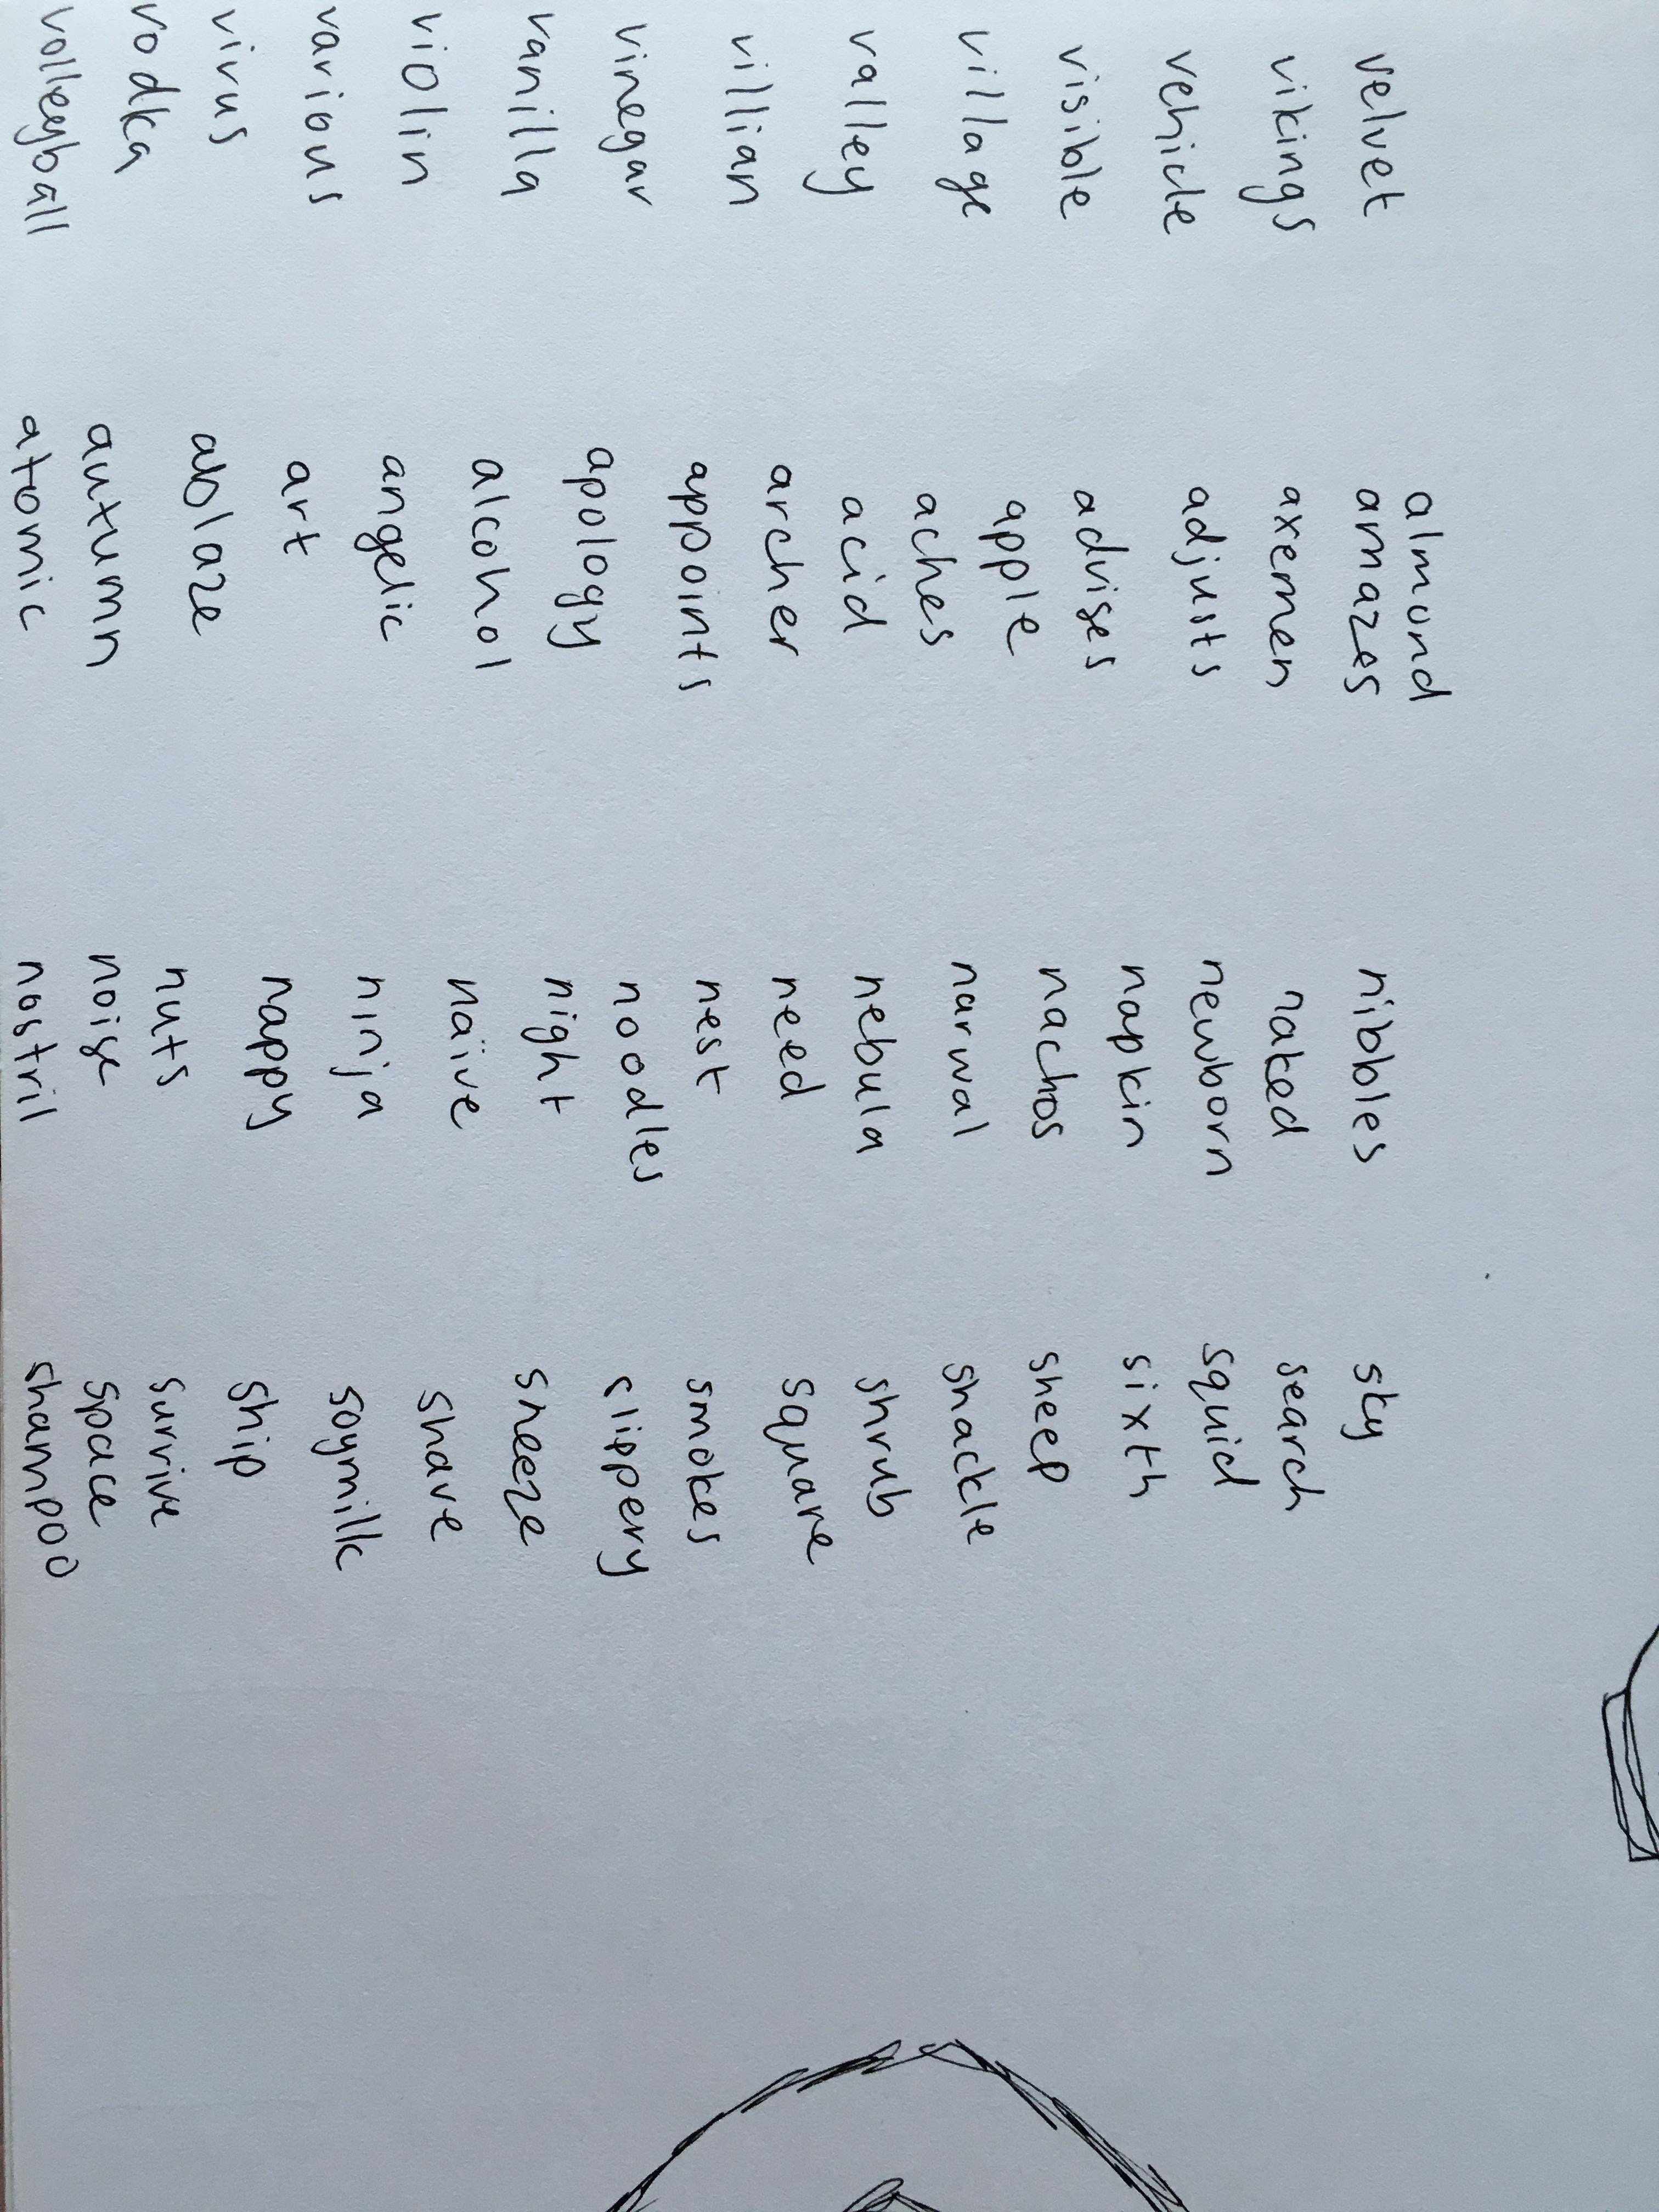 velvet
vikings
vehicle
visible
village
valley
villian
vinegar
vanilla
violin
various
virus
vodka
volleyball
almond
amazes
axemen
adjusts
advises
apple
aches
acid
archer
appoints
apology
alcohol
angelic
art
ablaze
autumn
atomic
nibbles
naked
newborn
napkin
nachos
narwal
nebula
need
nest
noodles
night
naïve
ninja
nappy
nuts
noise
nostril
sky
search
squid
sixth
sheep
shackle
shrub
square
smokes
slippery
sneeze
shave
soymilk
ship
survive
space
shampoo